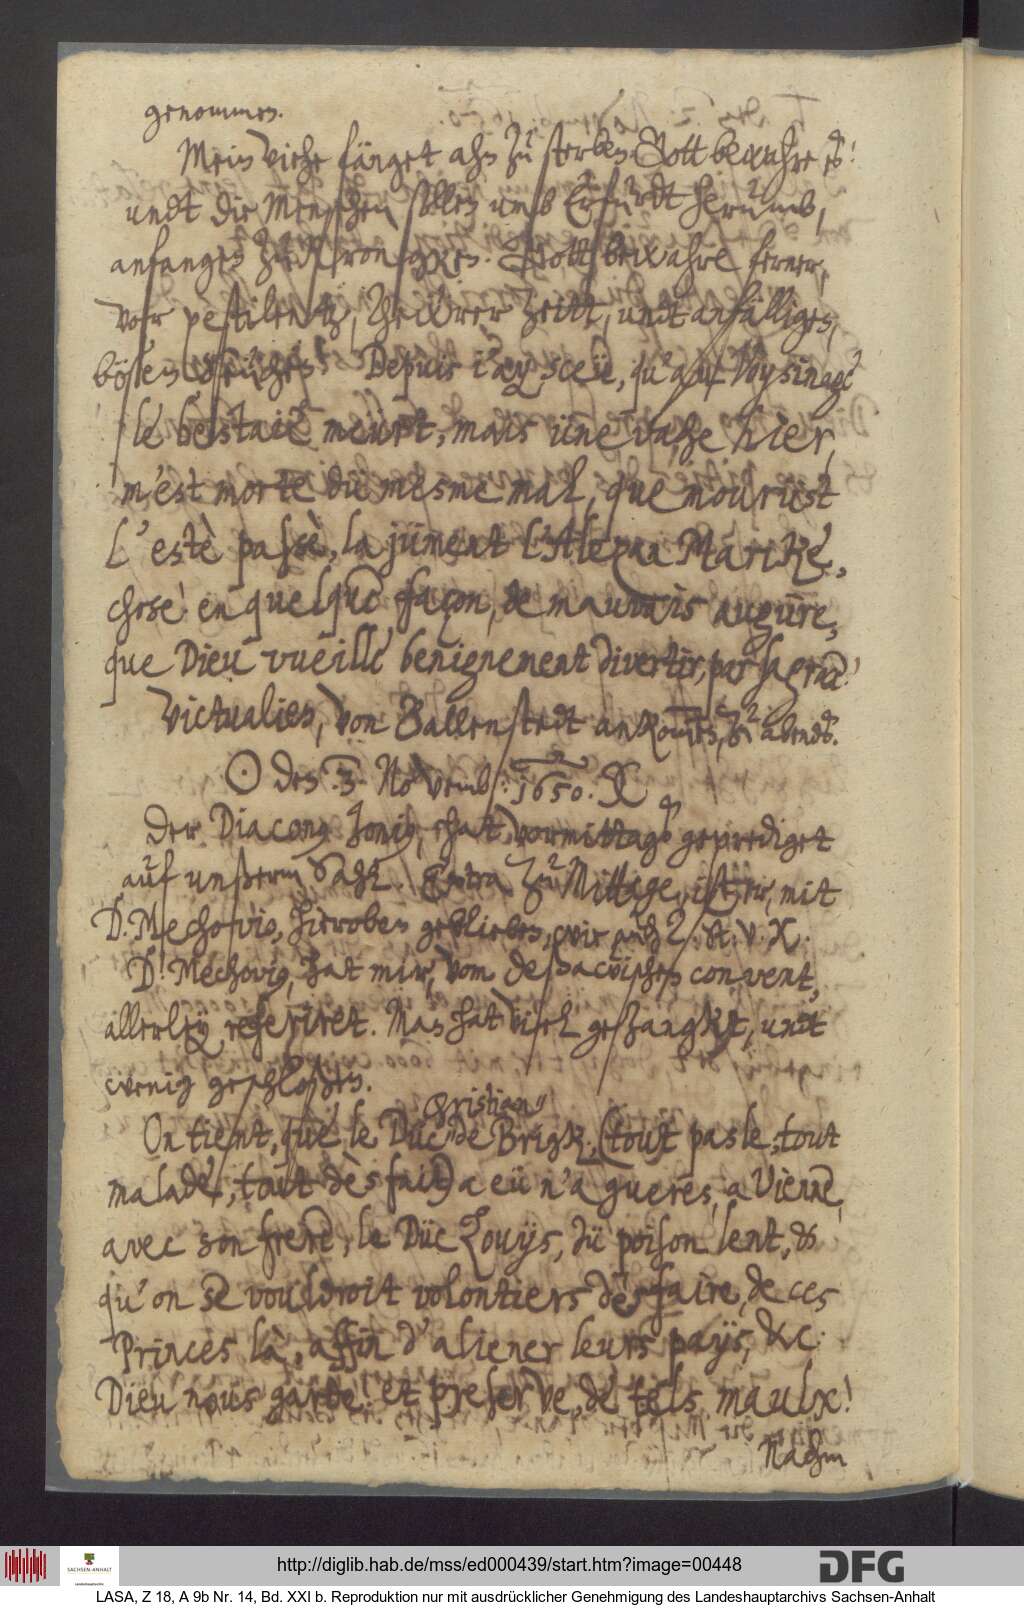 genommen.
Mein viehe fänget ahn zu sterben. Gott bewahre es!
undt die Menschen sollen umb Erfurdt herümb,
anfangen zu krancken. Gott bewahre ferner,
vor pestilentz, theürer zeitt, undt anfälligen,
bösen seüchen! Depuis i'ay sceü, qu'au Voysinage
le bestail meürt, mais üne vache hier,
m'est morte dü mesme mal, que mourüst
l'estè passè, la jüment l'Alepaa Marike,
chose en quelque façon, de mauvais augure,
que Dieu vueille benignement divertir, par sa grace!
Victualien, von Ballenstedt ankommen, abends.
⊙ den 3. November: 1650.
Der Diaconus Jonius, hat, vormittags geprediget
auf unßerm Sahl. Extra zu Mittage, ist er, mit
D. Mechovio, hieroben geblieben, wie auch
D. Mechovius, hat mir, vom Deßawischen convent,
allerley referiret. Man hat viel gezanckt, undt
wenig geschloßen.
Christian
On tient, que le Düc de Brigk, (tout pasle, tout
malade, tout desfait) a eü n'a gueres, a Vienne,
avec son frere, le Düc Louys, dü poison lent, &
qu'on se vouldroit volontiers desfaire, de ces
Princes là, affin d'aliener leurs pays, &c.
Dieu nous garde! et preserve, de tels maulx!
Nachm
http://diglib.hab.de/mss/ed000439/start.htm?image=00448
SACHSEN-ANHALT
DFG
LASA, Z 18, A 9b Nr. 14, Bd. XXI b. Reproduktion nur mit ausdrücklicher Genehmigung des Landeshauptarchivs Sachsen-Anhalt